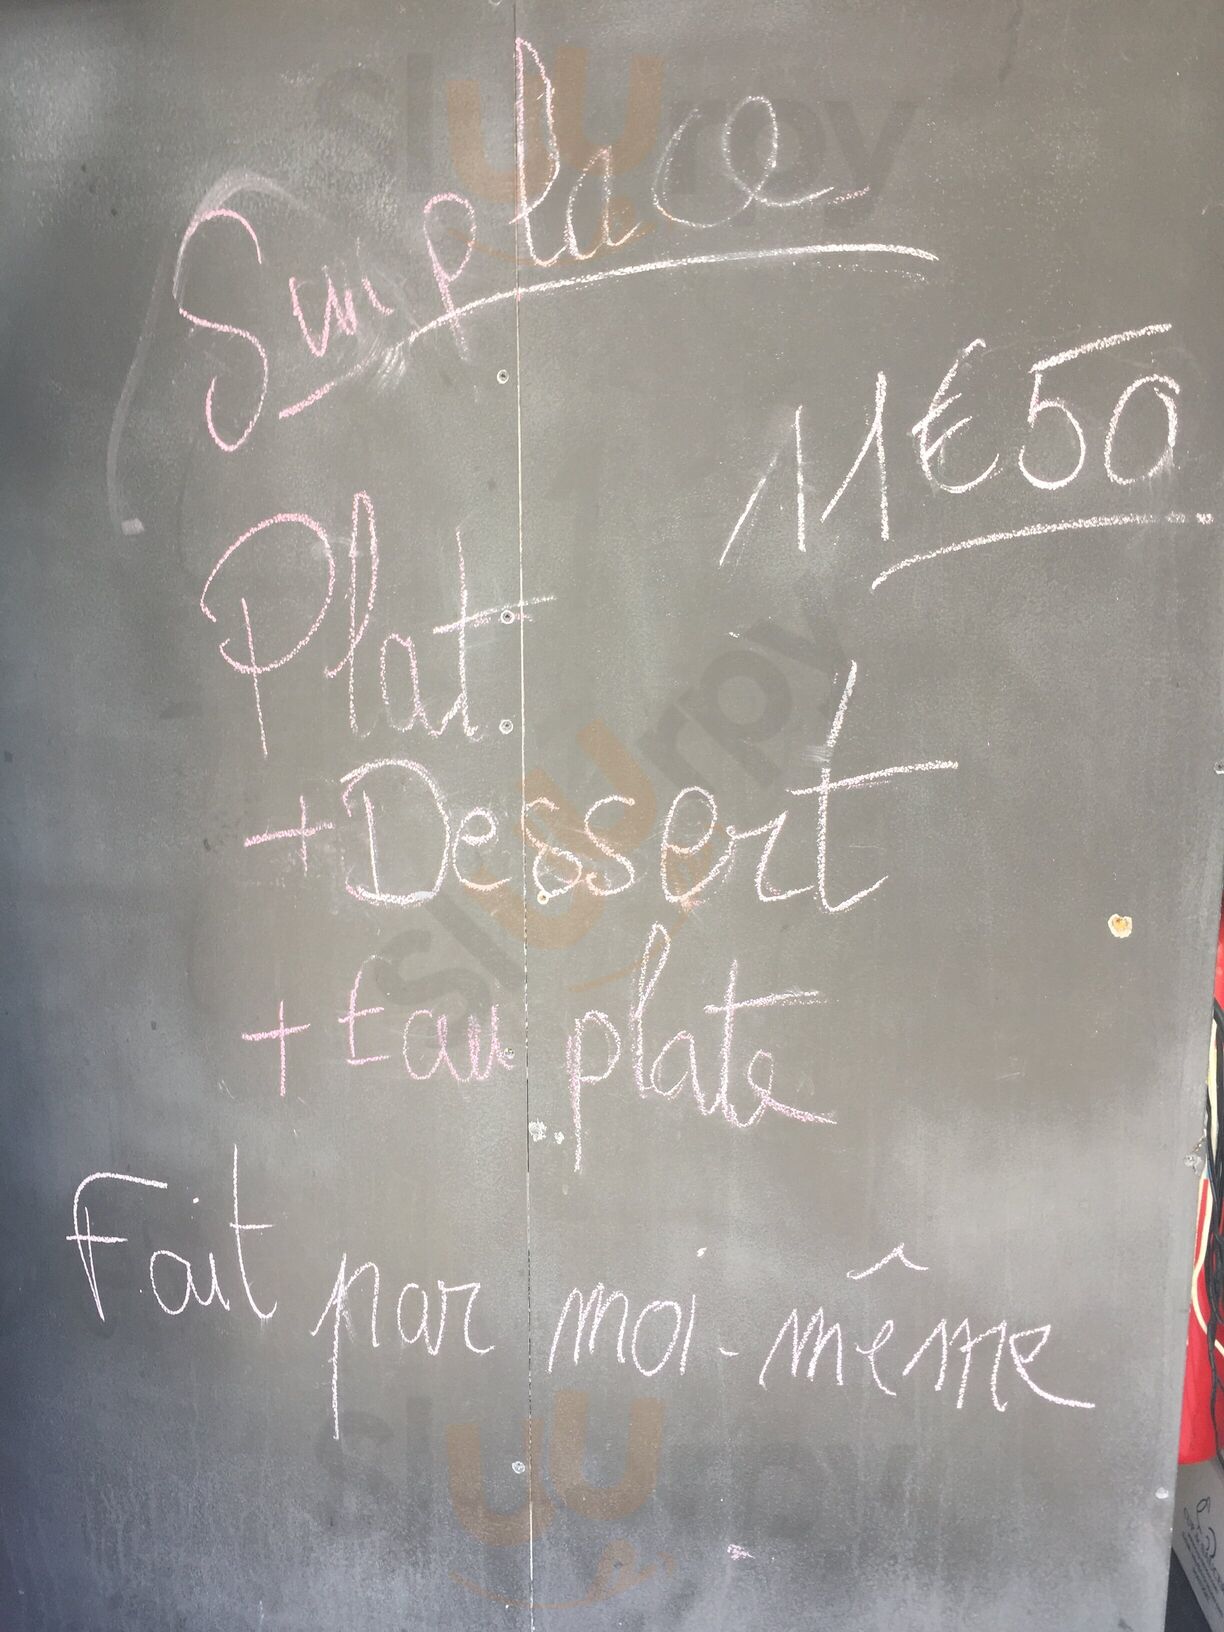 Sur place
11€50
Plat
+ Dessert
+ Eau plate
Fait par moi-même
sluurpy
sluurpy
sluurpy